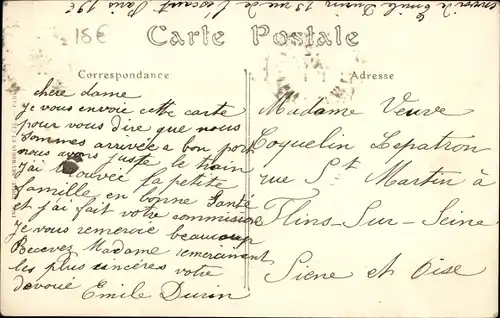 envoi de Emile Durin 13 rue de l'
Paris 19e
18€
Carte Postale
Correspondance
Adresse
chere dame
Je vous envoie cette carte
pour vous dire que nous
sommes arrivée a bon port
nous avons juste le train
j'ai trouvée la petite
famille en bonne Santé
et j'ai fait votre commission
je vous remercie beaucoup
Recevez Madame remerciment
les plus sincères votre
devoué Emile Durin
Madame Veuve
Coquelin Lepatron
rue St Martin à
Flins-Sur-Seine
Siene et Oise